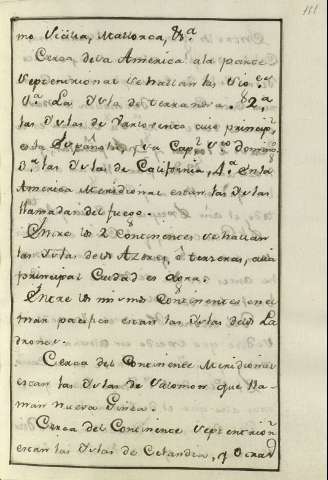 111
mo Sicilia, Mallorca, &ª
Cerca de la America a la parte
Septentrional se hallan las
1ª La Isla de Terranova. 2ª
las Islas de Varlovento cuio princip.
es la Española, y su Cap.
3ª las Islas de California, 4ª En la
America Meridional estan las Islas
llamadas del fuego.
Entre los 2 Continentes se hallan
las Islas de los Azores, o terzeras, cuia
principal Ciudad es
Entre los mismos Continentes en el
mar pacifico estan las Islas de los La
drones.
Cerca del Continente Meridional
estan las Islas de Salomon que lla-
man nueva Ginea.
Cerca del Continente Septentrion
estan las Islas de Zelandia, y Otras